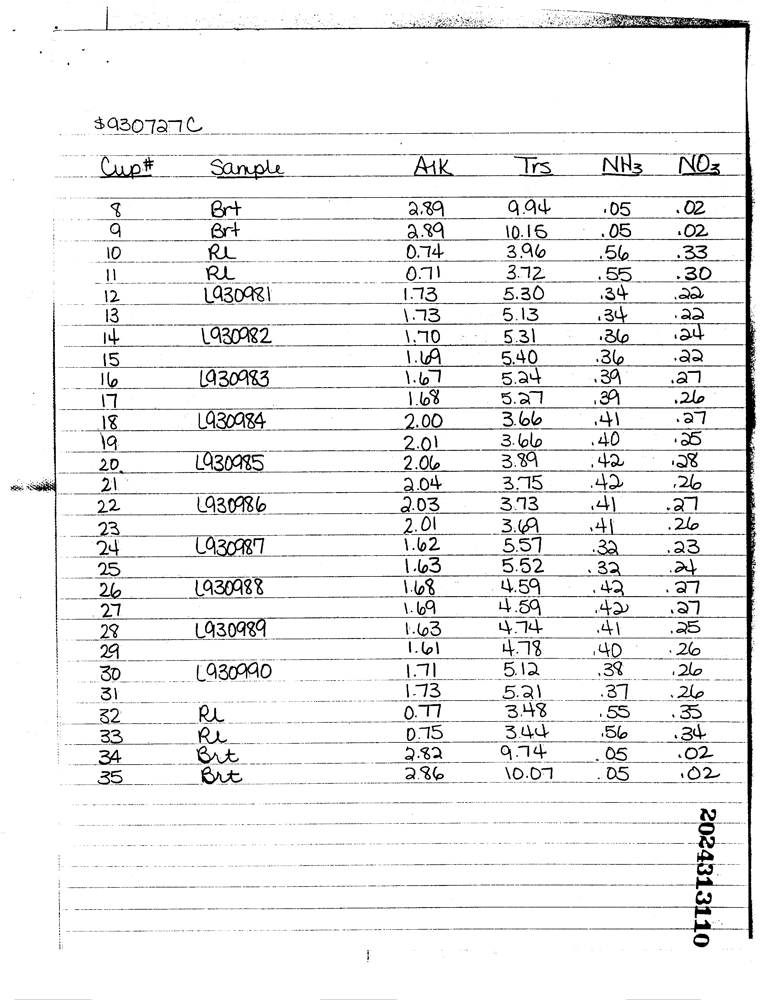 $930727C
Cup# Sample Alk Trs NH3 NO3
8 Brt 2.89 9.94 .05 .02
9 Brt 2.89 10.15 .05 .02
10 RL 0.74 3.96 .56 .33
11 RL 0.71 3.72 .55 .30
12 L930981 1.73 5.30 .34 .22
13 1.73 5.13 .34 .22
14 L930982 1.70 5.31 .36 .24
15 1.69 5.40 .36 .22
16 L930983 1.67 5.24 .39 .27
17 1.68 5.27 .39 .26
18 L930984 2.00 3.66 .41 .27
19 2.01 3.66 .40 .25
20 L930985 2.06 3.89 .42 .28
21 2.04 3.75 .42 .26
22 L930986 2.03 3.73 .41 .27
23 2.01 3.69 .41 .26
24 L930987 1.62 5.57 .32 .23
25 1.63 5.52 .32 .24
26 L930988 1.68 4.59 .42 .27
27 1.69 4.59 .42 .27
28 L930989 1.63 4.74 .41 .25
29 1.61 4.78 .40 .26
30 L930990 1.71 5.12 .38 .26
31 1.73 5.21 .37 .26
32 RL 0.77 3.48 .55 .35
33 RL 0.75 3.44 .56 .34
34 Brt 2.82 9.74 .05 .02
35 Brt 2.86 10.07 .05 .02
2024313110